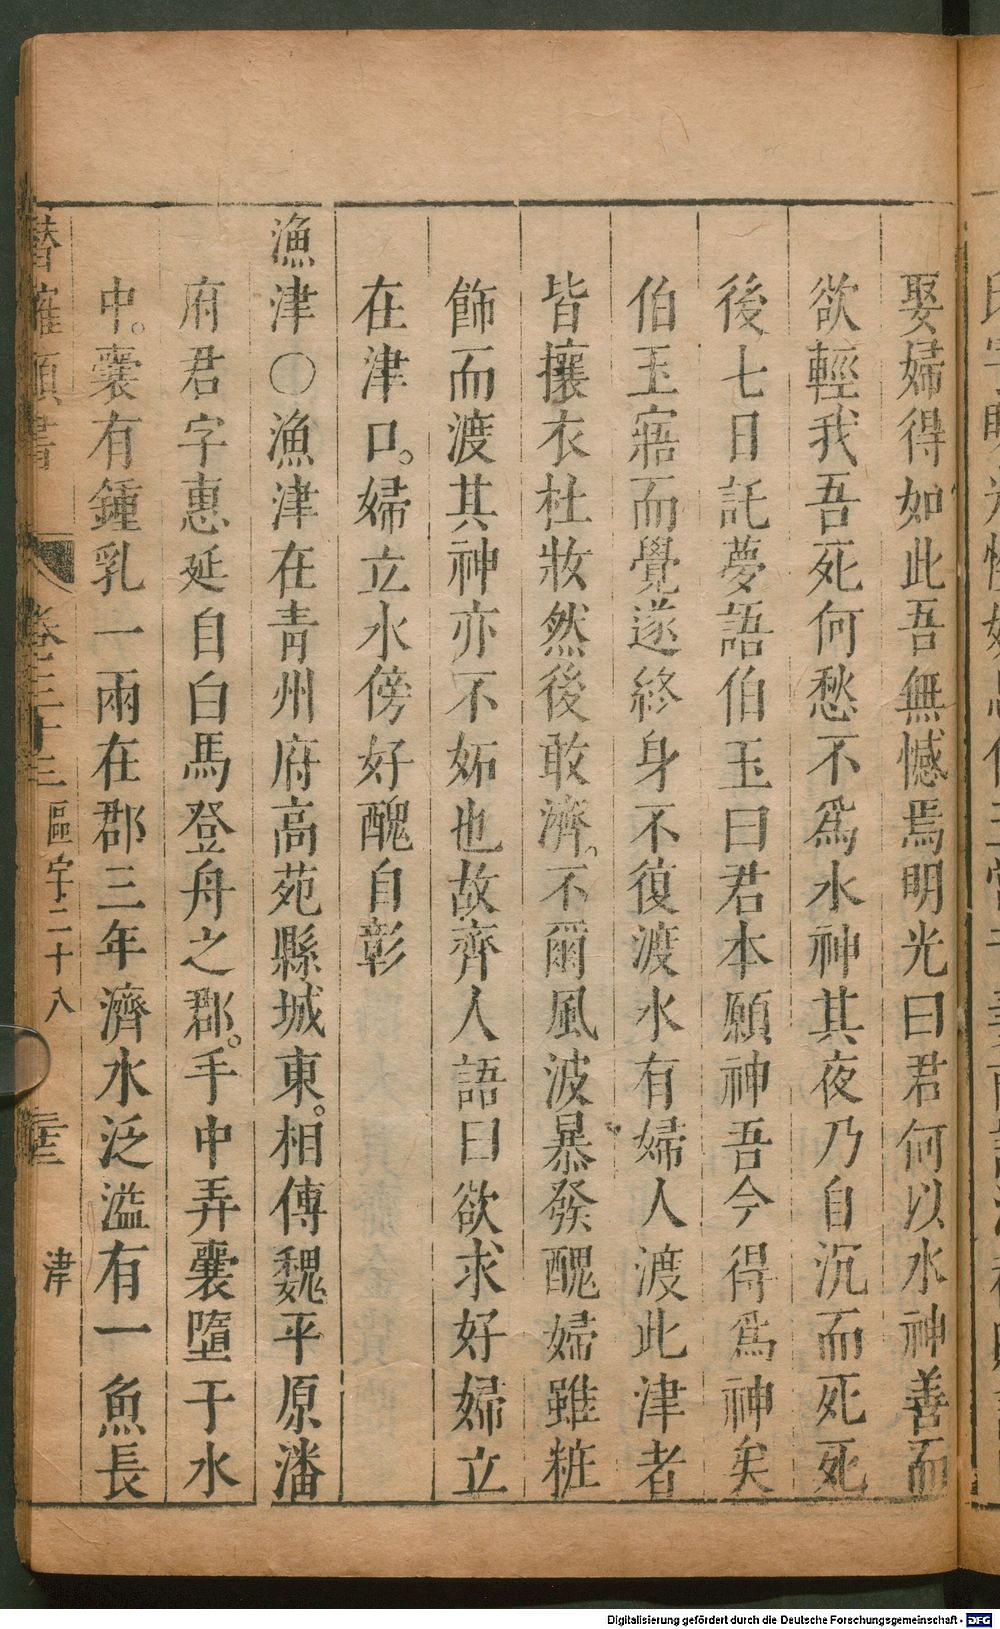 娶婦得如此吾無憾焉明光曰君何以水神善而
欲輕我吾死何愁不爲水神其夜乃自沉而死死
後七日託夢語伯玉曰君本願神吾今得爲神矣
伯玉寤而覺遂終身不復渡水有婦人渡此津者
皆攘衣杜妝然後敢濟。不爾風波暴發醜婦雖粧
飾而渡其神亦不妬也故齊人語曰欲求好婦立
在津口。婦立水傍好醜自彰
漁津〇漁津在青州府高苑縣城東。相傳魏平原潘
府君字惠延自白馬登舟之郡。手中弄囊墮于水
中。囊有鍾乳一兩在郡三年濟水泛溢有一魚長
潛確類書 卷三十三 區宇二十八 津
Digitalisierung gefördert durch die Deutsche Forschungsgemeinschaft - DFG